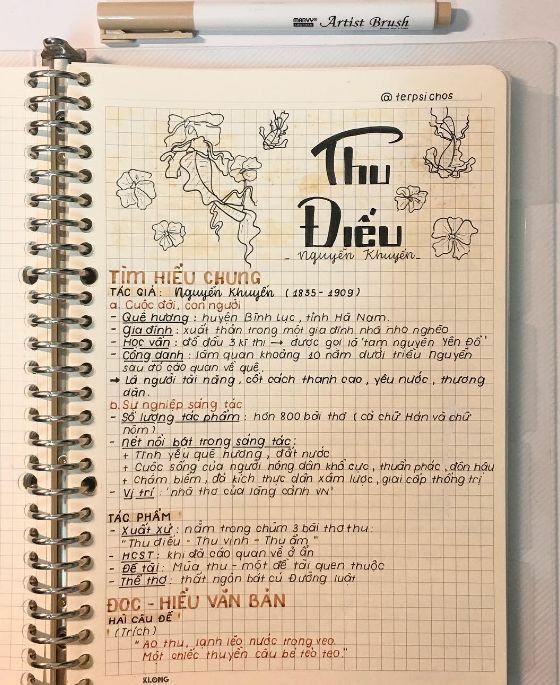 MARVY Artist Brush
@terpsichos
Thu
Điếu
- Nguyễn Khuyến -
TÌM HIỂU CHUNG
TÁC GIẢ : Nguyễn Khuyến (1835 - 1909)
a. Cuộc đời, con người
- Quê hương : huyện Bình Lục, tỉnh Hà Nam.
- Gia đình : xuất thân trong một gia đình nhà nho nghèo
- Học vấn : đỗ đầu 3 kì thi → được gọi là 'tam nguyên Yên Đổ'
- Công danh : làm quan khoảng 10 năm dưới triều Nguyễn
sau đó cáo quan về quê.
→ Là người tài năng, cốt cách thanh cao, yêu nước, thương
dân.
b. Sự nghiệp sáng tác
- Số lượng tác phẩm : hơn 800 bài thơ (cả chữ Hán và chữ
nôm)
- Nét nổi bật trong sáng tác :
+ Tình yêu quê hương, đất nước
+ Cuộc sống của người nông dân khổ cực, thuần phác, đôn hậu
+ Châm biếm, đả kích thực dân xâm lược, giai cấp thống trị
- Vị trí : 'nhà thơ của làng cảnh VN'
TÁC PHẨM
- Xuất xứ : nằm trong chùm 3 bài thơ thu:
"Thu điếu - Thu vịnh - Thu ẩm"
- HCST : khi đã cáo quan về ở ẩn
- Đề tài : Mùa thu - một đề tài quen thuộc
- Thể thơ : thất ngôn bát cú Đường luật
ĐỌC - HIỂU VĂN BẢN
HAI CÂU ĐỀ
(Trích)
"Ao thu, lạnh lẽo nước trong veo.
Một chiếc thuyền câu bé tẻo teo."
KLONG